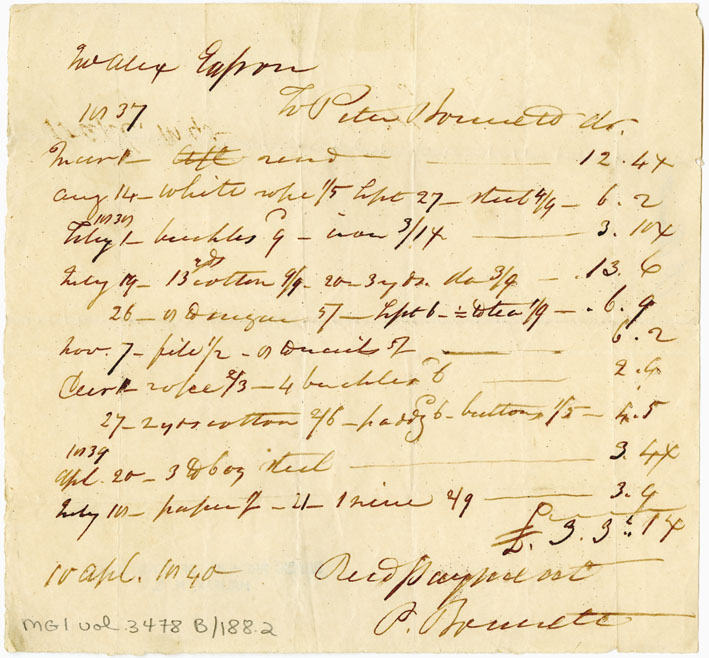 Mr Alex Easson
1837 To Peter Bonnett dr.
March — rend — 12.4½
Aug 14 — white rope 1/5 Sept 27 — steel 4/9 — 6.2
1838
July 1 — buckles 9 — iron 3/1½ — 3.10½
July 19 — 13 yds cotton 9/9 — 20 — 3 yds. do 3/9 — 13.6
26 — 8 lb sugar 5/ — Sept 6 — ½ lb tea 1/9 — 6.9
Nov. 7 — file 1/2 — 8 lb nails 5/ — 6.2
rope 2/3 — 4 buckles 6 — 2.9
27 — 2 yds cotton 2/6 — 6 — buttons 1/5 — 4.5
1839
Apl. 20 — 3 lb 6 oz steel — 3.4½
July 18 — paper — 21 — 1 2/9 — 3.9
£. 3. 3. 1½
10 Apl. 1840 Recd payment
P. Bonnett
MG1 vol. 3478 B/188.2